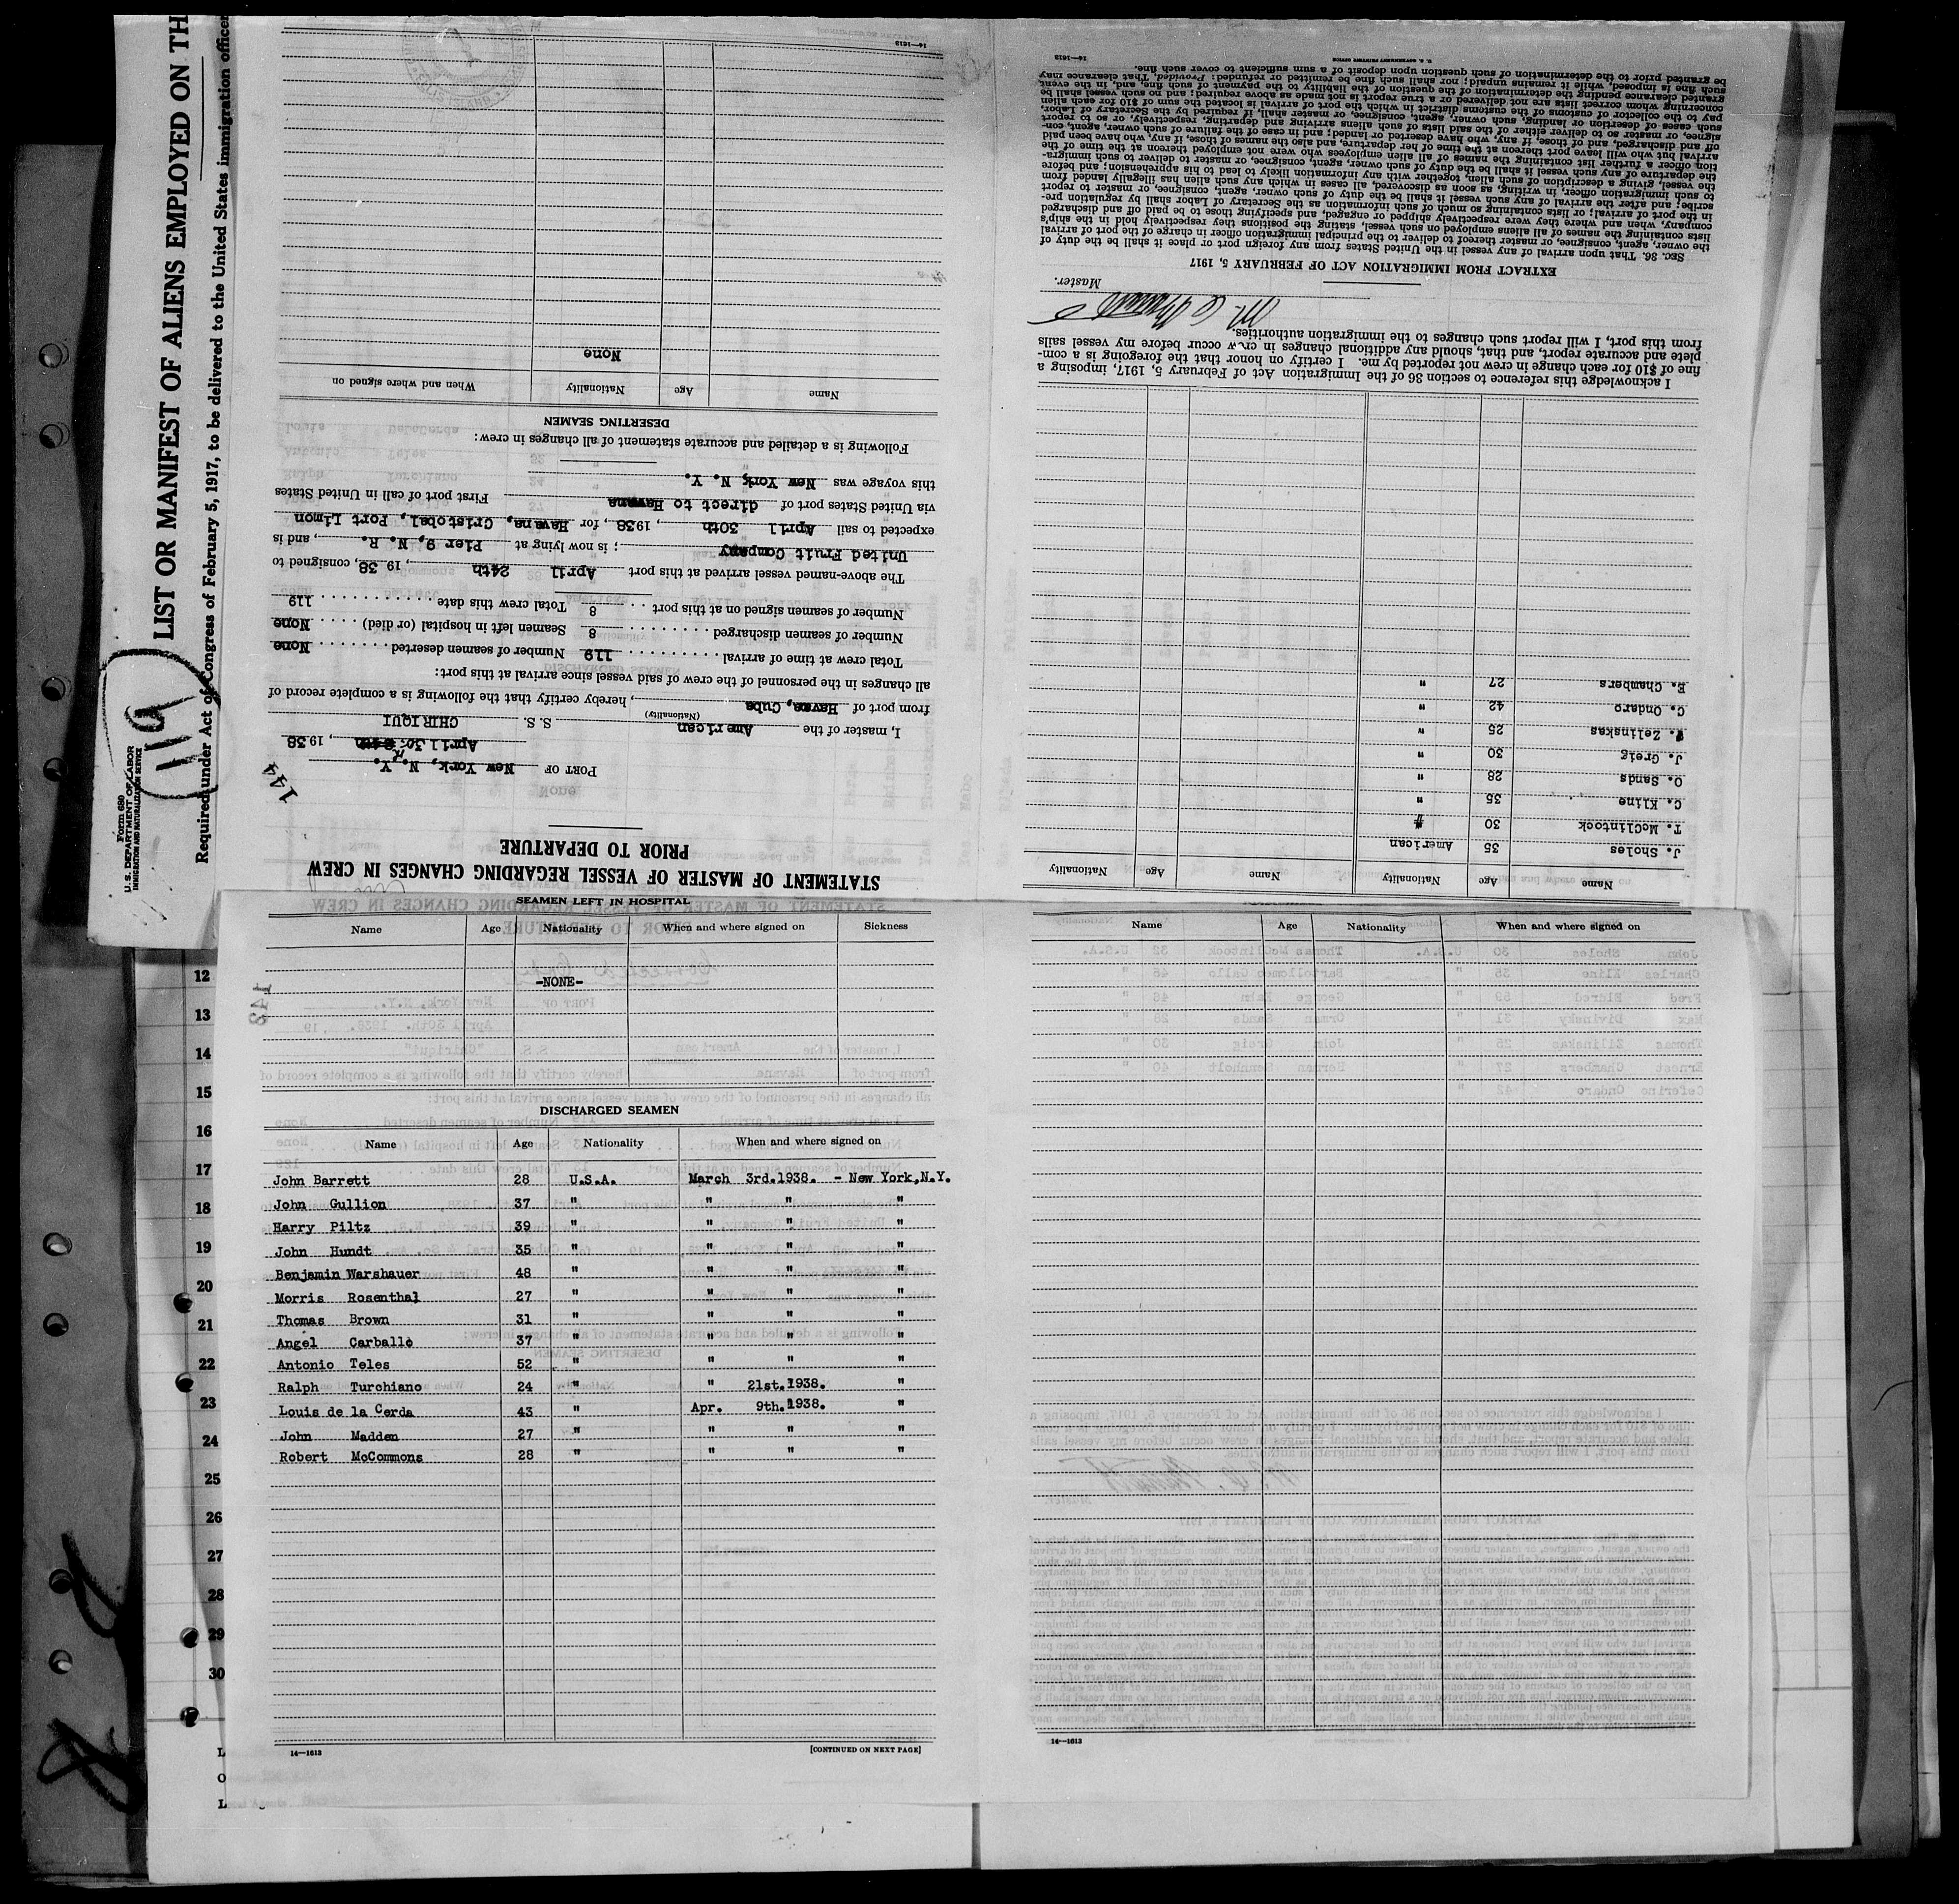 Form 680
U. S. DEPARTMENT OF LABOR
IMMIGRATION AND NATURALIZATION SERVICE
119
LIST OR MANIFEST OF ALIENS EMPLOYED ON TH
Required under Act of Congress of February 5, 1917, to be delivered to the United States immigration officer
STATEMENT OF MASTER OF VESSEL REGARDING CHANGES IN CREW
PRIOR TO DEPARTURE
144
PORT OF New York, N. Y.
April 30, 1938
I, master of the American S. S. CHIRIQUI
(Nationality)
from port of Havana, Cuba, hereby certify that the following is a complete record of
all changes in the personnel of the crew of said vessel since arrival at this port:
Total crew at time of arrival 119 Number of seamen deserted None
Number of seamen discharged 8 Seamen left in hospital (or died) None
Number of seamen signed on at this port 8 Total crew this date 119
The above-named vessel arrived at this port April 24th, 1938, consigned to
United Fruit Company; is now lying at Pier 9, N. R., and is
expected to sail April 30th, 1938, for Havana, Cristobal, Port Limon
via United States port of direct to Havana First port of call in United States
this voyage was New York, N. Y.
Following is a detailed and accurate statement of all changes in crew:
DESERTING SEAMEN
Name Age Nationality When and where signed on
None
14—1613
Name Age Nationality Name Age Nationality
J. Sholes 35 American
T. McClintock 30 "
C. Kline 35 "
O. Sands 28 "
J. Greig 30 "
T. Zelinskas 25 "
C. Ondaro 42 "
E. Chambers 27 "
I acknowledge this reference to section 36 of the Immigration Act of February 5, 1917, imposing a
fine of $10 for each change in crew not reported by me. I certify on honor that the foregoing is a com-
plete and accurate report, and that, should any additional changes in crew occur before my vessel sails
from this port, I will report such changes to the immigration authorities.
Master.
EXTRACT FROM IMMIGRATION ACT OF FEBRUARY 5, 1917
SEC. 36. That upon arrival of any vessel in the United States from any foreign port or place it shall be the duty of
the owner, agent, consignee, or master thereof to deliver to the principal immigration officer in charge of the port of arrival
lists containing the names of all aliens employed on such vessel, stating the positions they respectively hold in the ship's
company, when and where they were respectively shipped or engaged, and specifying those to be paid off and discharged
in the port of arrival; or lists containing so much of such information as the Secretary of Labor shall by regulation pre-
scribe; and after the arrival of any such vessel it shall be the duty of such owner, agent, consignee, or master to report
to such immigration officer, in writing, as soon as discovered, all cases in which any such alien has illegally landed from
the vessel, giving a description of such alien, together with any information likely to lead to his apprehension; and before
the departure of any such vessel it shall be the duty of such owner, agent, consignee, or master to deliver to such immigra-
tion officer a further list containing the names of all alien employees who were not employed thereon at the time of the
arrival but who will leave port thereon at the time of her departure, and also the names of those, if any, who have been paid
off and discharged, and of those, if any, who have deserted or landed; and in case of the failure of such owner, agent, con-
signee, or master so to deliver either of the said lists of such aliens arriving and departing, respectively, or so to report
such cases of desertion or landing, such owner, agent, consignee, or master shall, if required by the Secretary of Labor,
pay to the collector of customs of the customs district in which the port of arrival is located the sum of $10 for each alien
concerning whom correct lists are not delivered or a true report is not made as above required; and no such vessel shall be
granted clearance pending the determination of the question of the liability to the payment of such fine, and, in the event
such fine is imposed, while it remains unpaid; nor shall such fine be remitted or refunded: Provided, That clearance may
be granted prior to the determination of such question upon deposit of a sum sufficient to cover such fine.
U. S. GOVERNMENT PRINTING OFFICE 14—1613
SEAMEN LEFT IN HOSPITAL
Name Age Nationality When and where signed on Sickness
-NONE-
DISCHARGED SEAMEN
Name Age Nationality When and where signed on
John Barrett 28 U.S.A. March 3rd.1938. - New York,N.Y.
John Gullion 37 " " " "
Harry Piltz 39 " " " "
John Hundt 35 " " " "
Benjamin Warshauer 48 " " " "
Morris Rosenthal 27 " " " "
Thomas Brown 31 " " " "
Angel Carballo 37 " " " "
Antonio Teles 52 " " " "
Ralph Turchiano 24 " " 21st.1938. "
Louis de la Cerda 43 " Apr. 9th.1938. "
John Madden 27 " " " "
Robert McCommons 28 " " " "
14—1613 [CONTINUED ON NEXT PAGE]
Name Age Nationality When and where signed on
14—1613
12
13
14
15
16
17
18
19
20
21
22
23
24
25
26
27
28
29
30
L
O
L